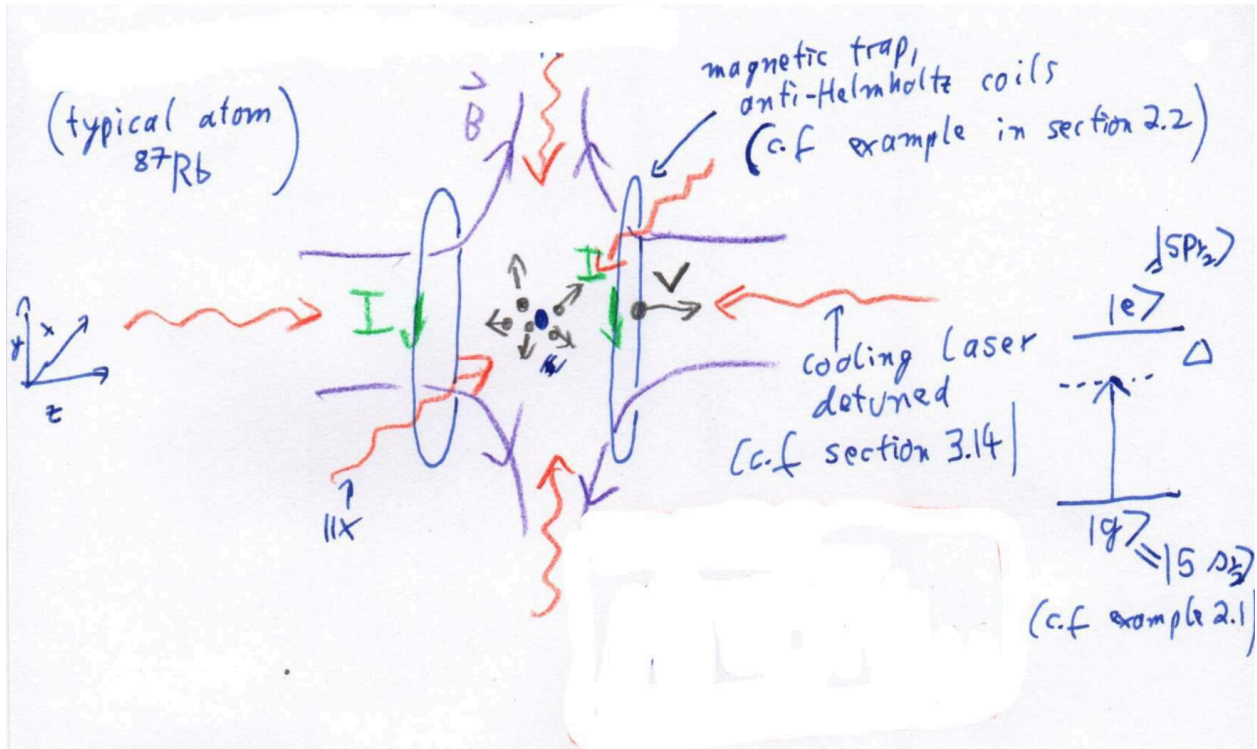 (typical atom
⁸⁷Rb)
B
magnetic trap,
anti-Helmholtz coils
(c.f example in section 2.2)
I
I
V
y
x
z
||x
cooling laser
detuned
(c.f section 3.14)
|e⟩
Δ
|g⟩
(c.f example 2.1)